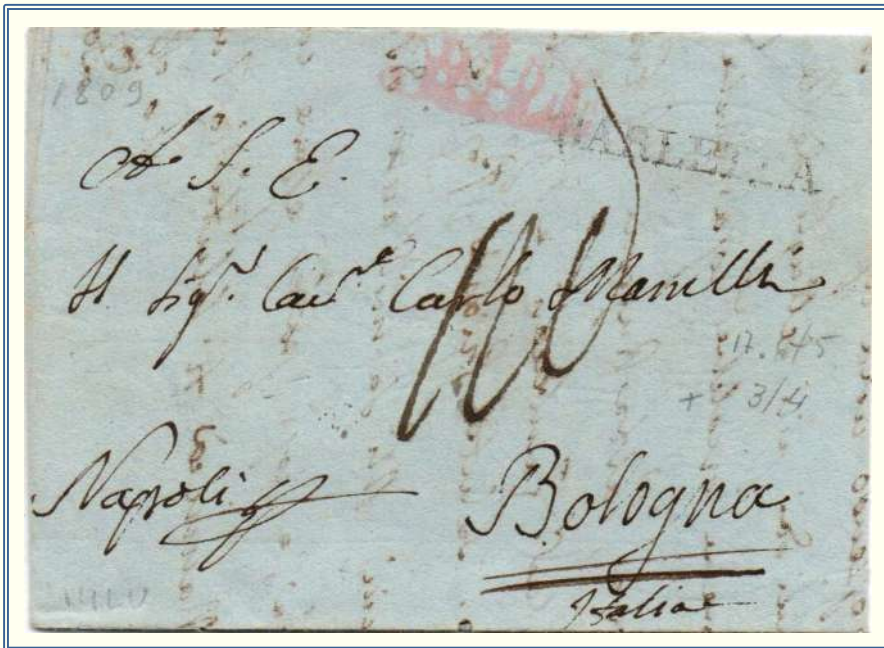 1809
BARLETTA
A S. E.
Il Sigr. Cav.e Carlo
17. 645
+ 3/4
Napoli
Bologna
Italia